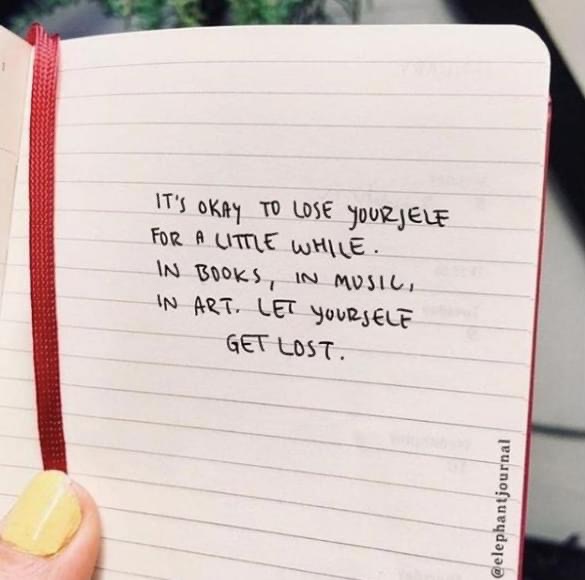 IT'S OKAY TO LOSE YOURSELF
FOR A LITTLE WHILE.
IN BOOKS, IN MUSIC,
IN ART. LET YOURSELF
GET LOST.
@elephantjournal